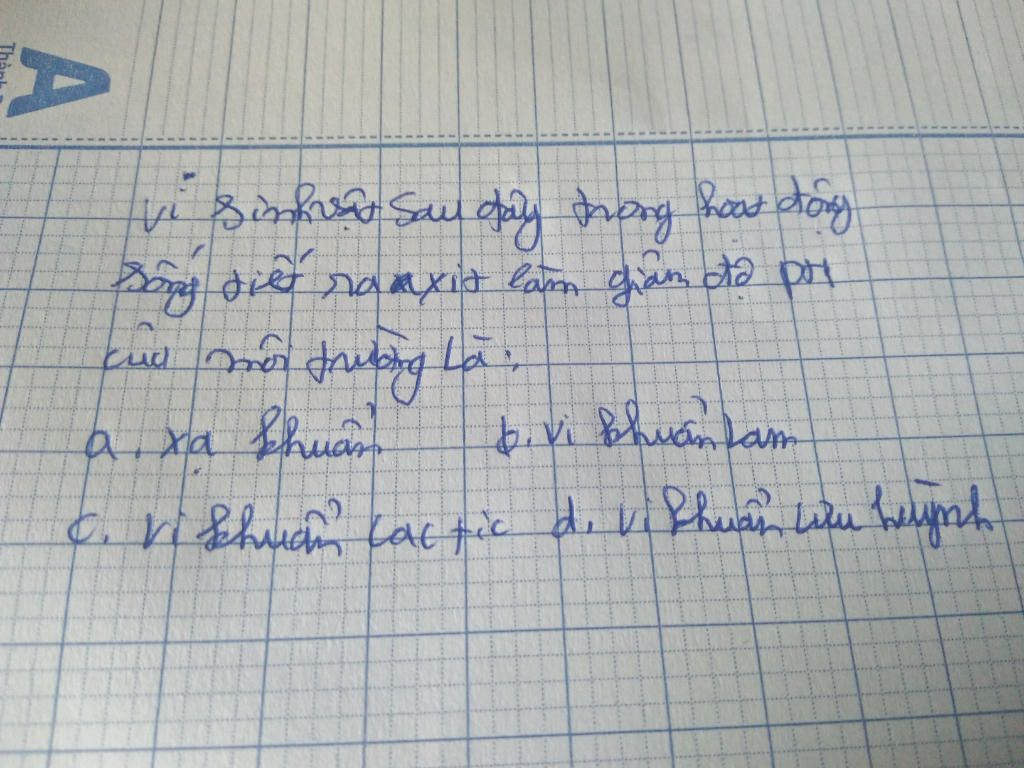 A
Thành
vi sinh vật sau đây trong hoạt động
sống tiết ra axit làm giảm độ pH
của môi trường là:
a. xạ khuẩn b. vi khuẩn lam
c. vi khuẩn lactic d. vi khuẩn lưu huỳnh